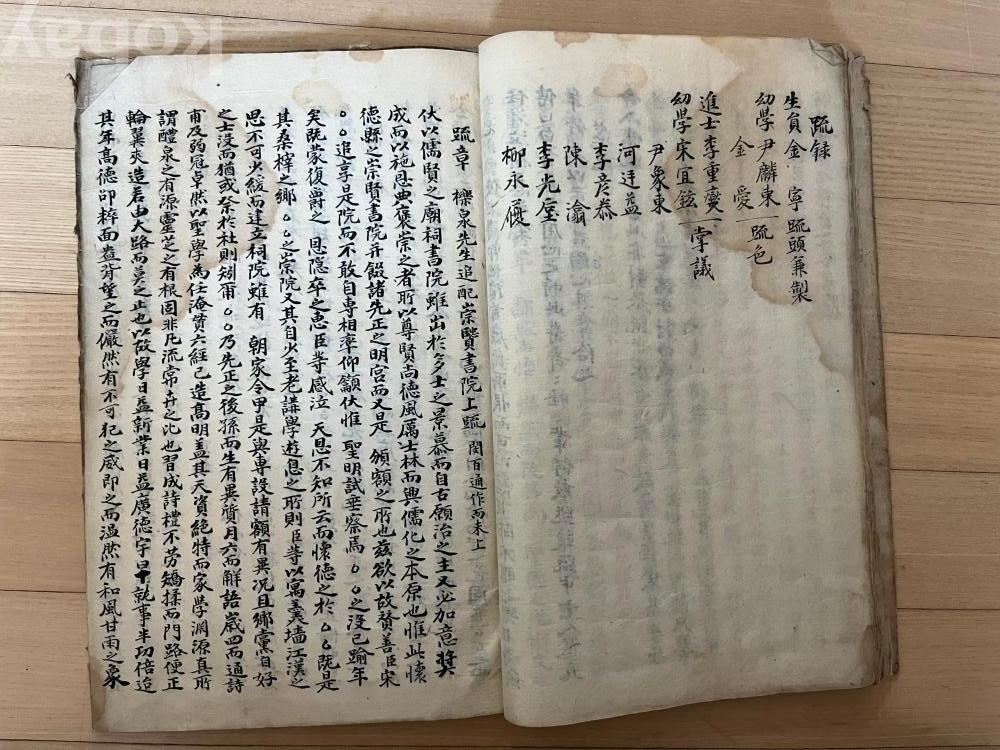 疏錄
生員金 寧 疏頭兼製
幼學尹麟東
金 愛 疏色
進士李重燮
幼學宋宜鉉 掌議
尹象東
河廷益
李彦泰
陳瀹
李光垕
柳永履
疏章 櫟泉先生追配崇賢書院上疏 閔百通作而未上
伏以儒賢之廟祠書院雖出於多士之景慕而自古願治之主又必加意奬
成而以施恩典褒崇之者所以尊賢尚德風厲士林而興儒化之本原也惟此懷
德縣之崇賢書院并餟諸先正之明宮而又是 頒額之所也玆欲以故贊善臣宋
○○追享是院而不敢自專相率仰籲伏惟 聖明試垂察焉○○之沒已踰年
矣旣蒙復爵之 恩隱卒之惠臣等感泣 天恩不知所云而懷德之於○○旣是
其桑榟之鄕○○之崇院又其自少至老講學遊息之所則臣等以寓羹墻江漢之
思不可少緩而建立祠院雖有 朝家令甲是與專設請額有異況且鄕黨自好
之士沒而猶或祭於社則矧爾○○乃先正之後孫而生有異質月六而解語歲四而通詩
甫及弱冠卓然以聖學爲任淹贯六經已造高明盖其天資絶特而家學渊源真所
謂醴泉之有源靈芝之有根固非凡流常卉之比也習成詩禮不劳矯揉而門路便正
輪翼夾造若由大路而莫之止也以故學日益新業日益廣德宇日就事半功倍迨
其年高德卲粹面盎背望之而儼然有不可犯之威即之而温然有和風甘雨之象
kobay